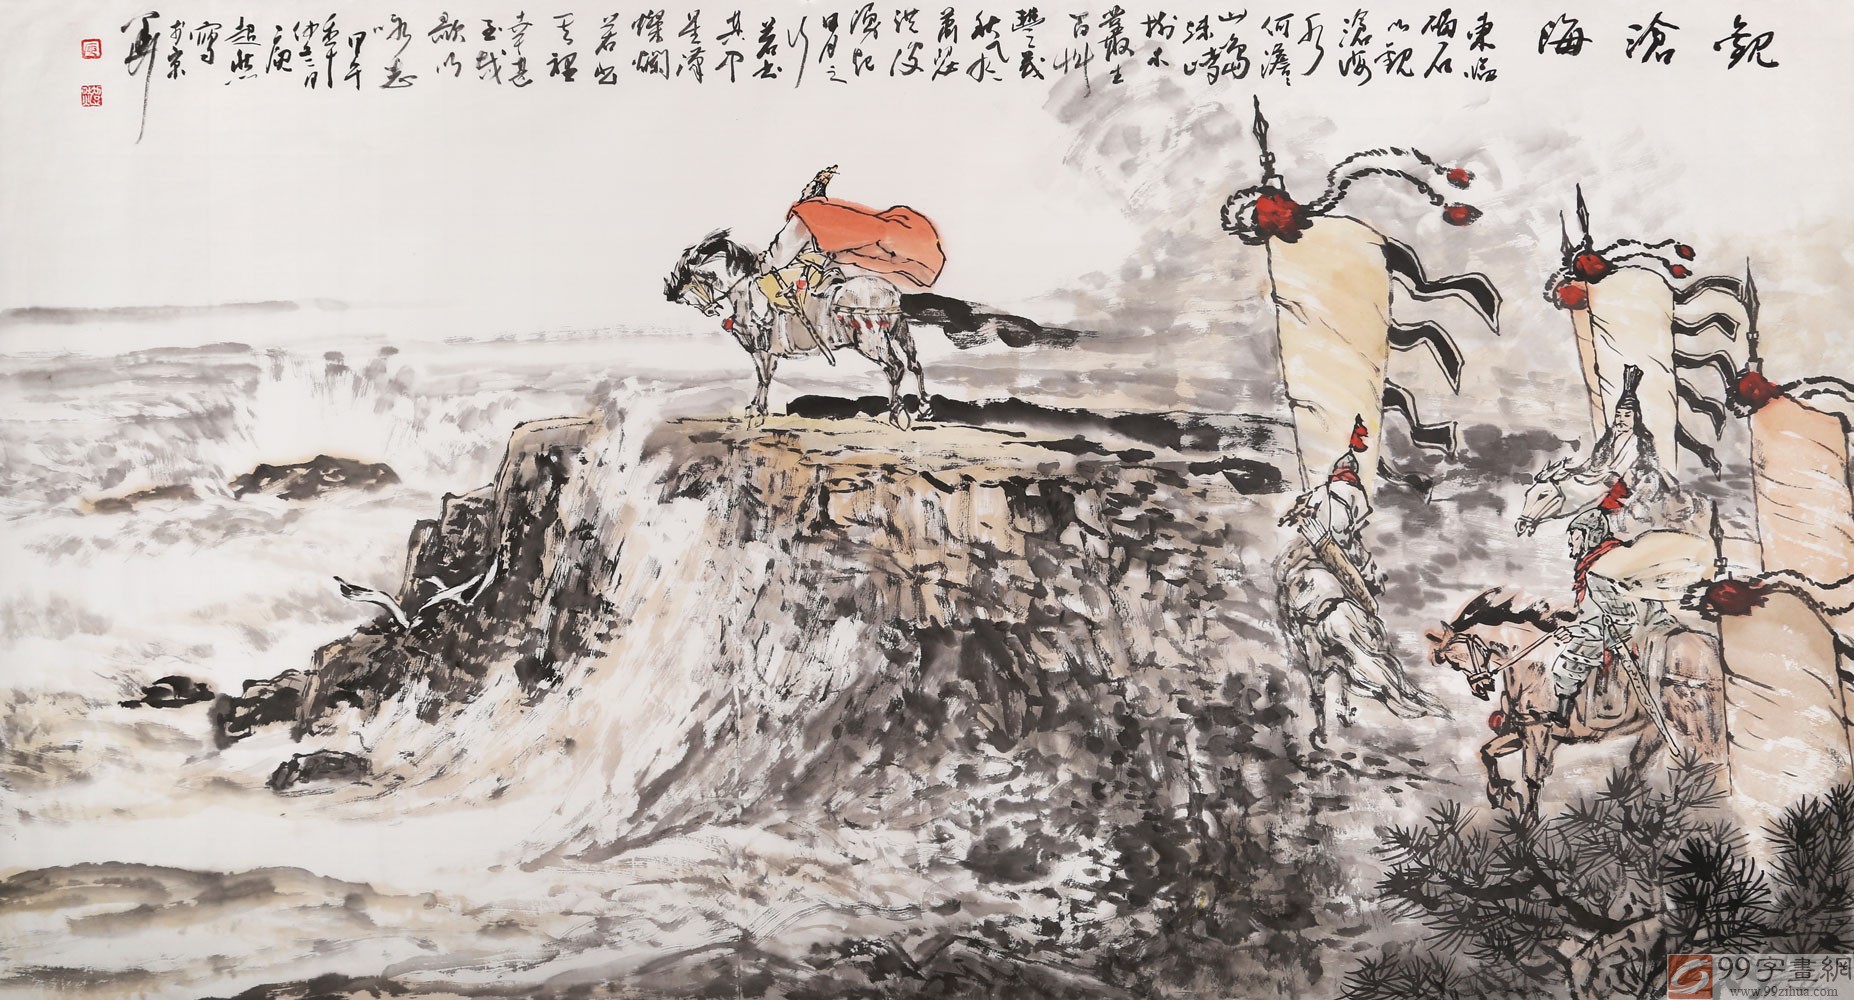 觀滄海
東臨
碣石
以觀
滄海
水
何澹澹
山島
竦峙
樹木
叢生
百草
豐茂
秋風
蕭瑟
洪波
湧起
日月之
行
若出
其中
星漢
燦爛
若出
其裡
幸甚
至哉
歌以
詠志
甲午
寫
於京
華
99字畫網
www.99zihua.com